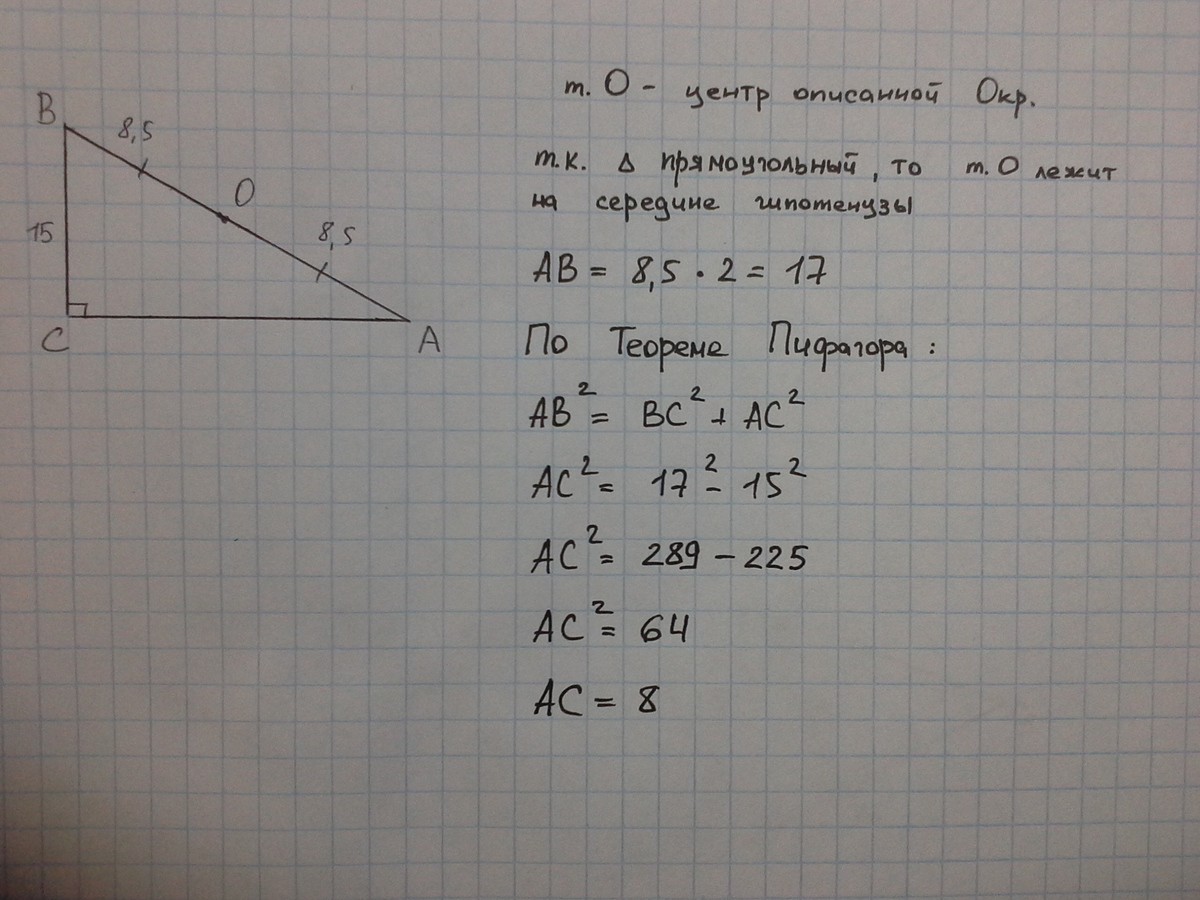 В
8,5
О
15
8,5
С
А
т. О - центр описанной Окр.
т.к. Δ прямоугольный, то т. О лежит
на середине гипотенузы
АВ = 8,5 · 2 = 17
По Теореме Пифагора:
АВ² = ВС² + АС²
АС² = 17² - 15²
АС² = 289 - 225
АС² = 64
АС = 8